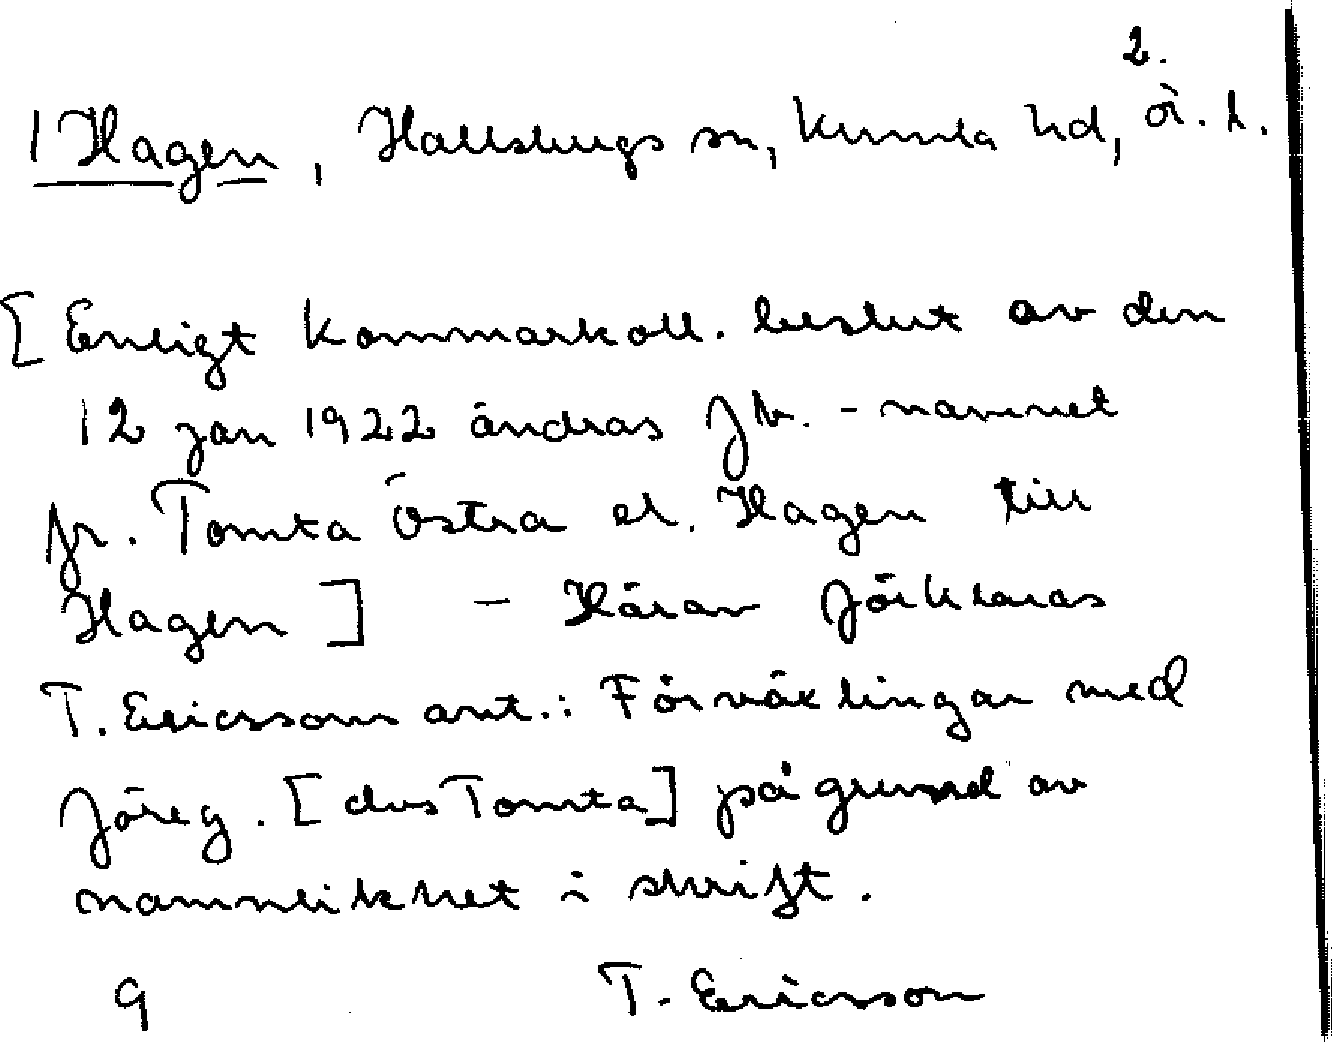 2.
1 Hagen, Hallsbergs sn, Kumla hd, Ör. l.
[Enligt Kammarkoll. beslut av den
12 jan 1922 ändras jb.-namnet
fr. Tomta Östra el. Hagen till
Hagen] - Härav förklaras
T. Ericssons ant.: Förväxlingar med
föreg. [dvs Tomta] på grund av
namnlikhet i skrift.
9 T. Ericsson